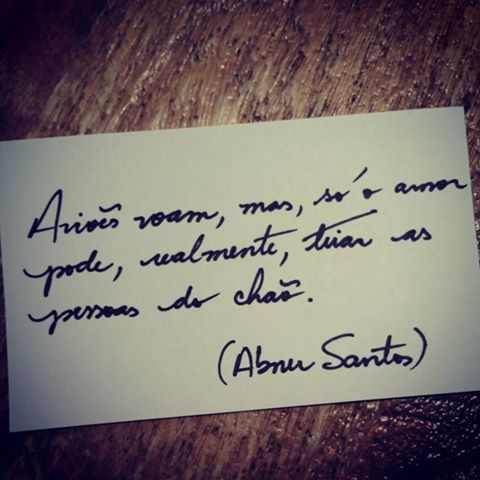 Aviões voam, mas, só o amor
pode, realmente, tirar as
pessoas do chão.
(Abner Santos)